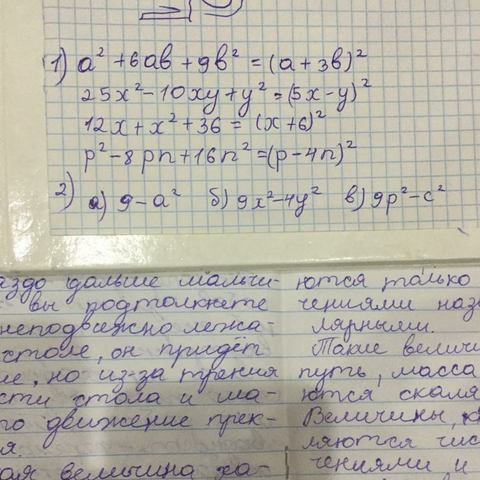 1) a² + 6ab + 9b² = (a + 3b)²
25x² - 10xy + y² = (5x - y)²
12x + x² + 36 = (x + 6)²
p² - 8pn + 16n² = (p - 4n)²
2) а) 9 - a² б) 9x² - 4y² в) 9p² - c²
дальше мальчи-
вы подтолкнете
неподвижно лежа-
столе, он придёт
но из-за трения
сти стола и
движение прек-
величина ха-
ются только
чениями
лярными.
Такие
путь, масса
ются
Величины,
ляются
чениями и